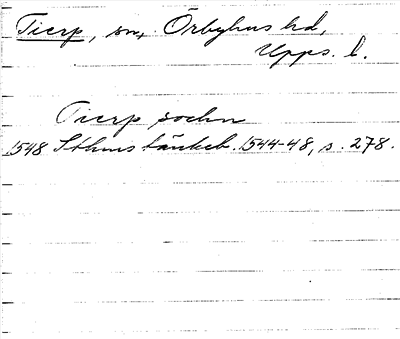 Tierp, sn, Örbyhus hd,
Upps. l.
Tierp sockn
1548 Sthms tänkeb. 1544-48, s. 278.